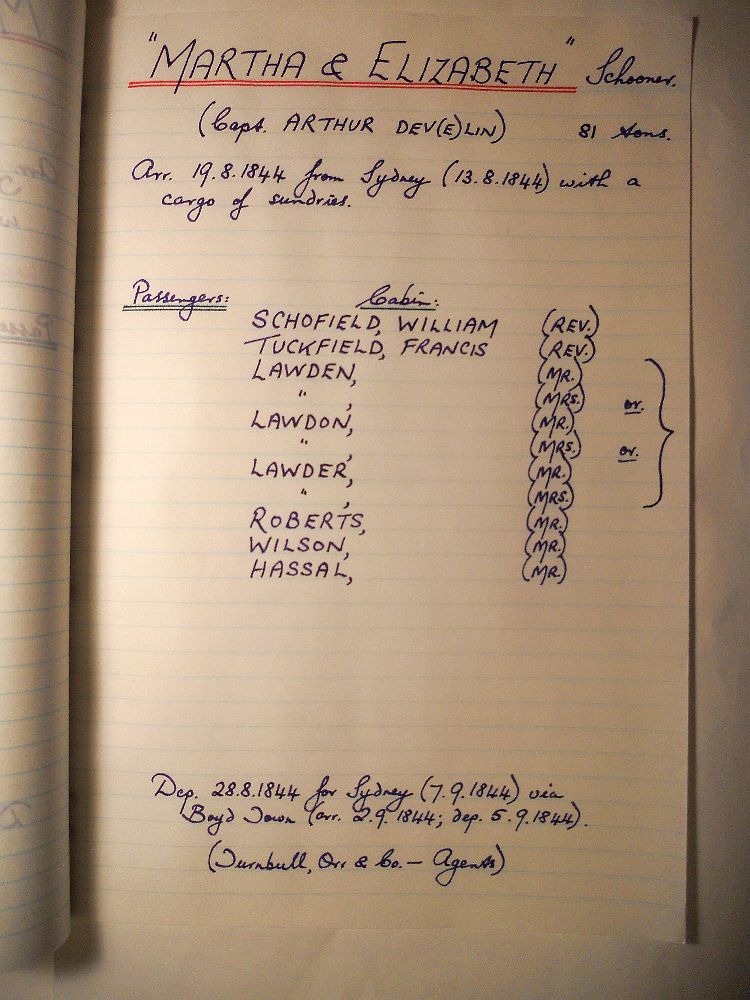 "MARTHA & ELIZABETH" Schooner.
(Capt. ARTHUR DEV(E)LIN) 81 tons.
Arr. 19.8.1844 from Sydney (13.8.1844) with a
cargo of sundries.
Passengers: Cabin:
SCHOFIELD, WILLIAM (REV.)
TUCKFIELD, FRANCIS (REV.)
LAWDEN, (MR.)
" , (MRS.) or.
LAWDON, (MR.)
" , (MRS.) or.
LAWDER, (MR.)
" , (MRS.)
ROBERTS, (MR.)
WILSON, (MR.)
HASSAL, (MR.)
Dep. 28.8.1844 for Sydney (7.9.1844) via
Boyd Town (arr. 2.9.1844; dep. 5.9.1844).
(Turnbull, Orr & Co. — Agents)